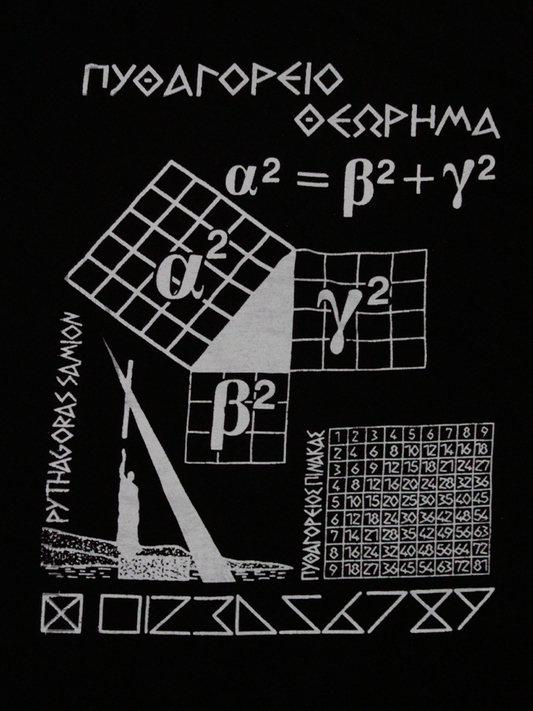 ΠΥΘΑΓΟΡΕΙΟ
ΘΕΩΡΗΜΑ
α² = β² + γ²
α²
γ²
β²
PYTHAGORAS SAMION
ΠΥΘΑΓΟΡΕΙΟΣ ΠΙΝΑΚΑΣ
1 2 3 4 5 6 7 8 9
2 4 6 8 10 12 14 16 18
3 6 9 12 15 18 21 24 27
4 8 12 16 20 24 28 32 36
5 10 15 20 25 30 35 40 45
6 12 18 24 30 36 42 48 54
7 14 21 28 35 42 49 56 63
8 16 24 32 40 48 56 64 72
9 18 27 36 45 54 63 72 81
0 1 2 3 4 5 6 7 8 9